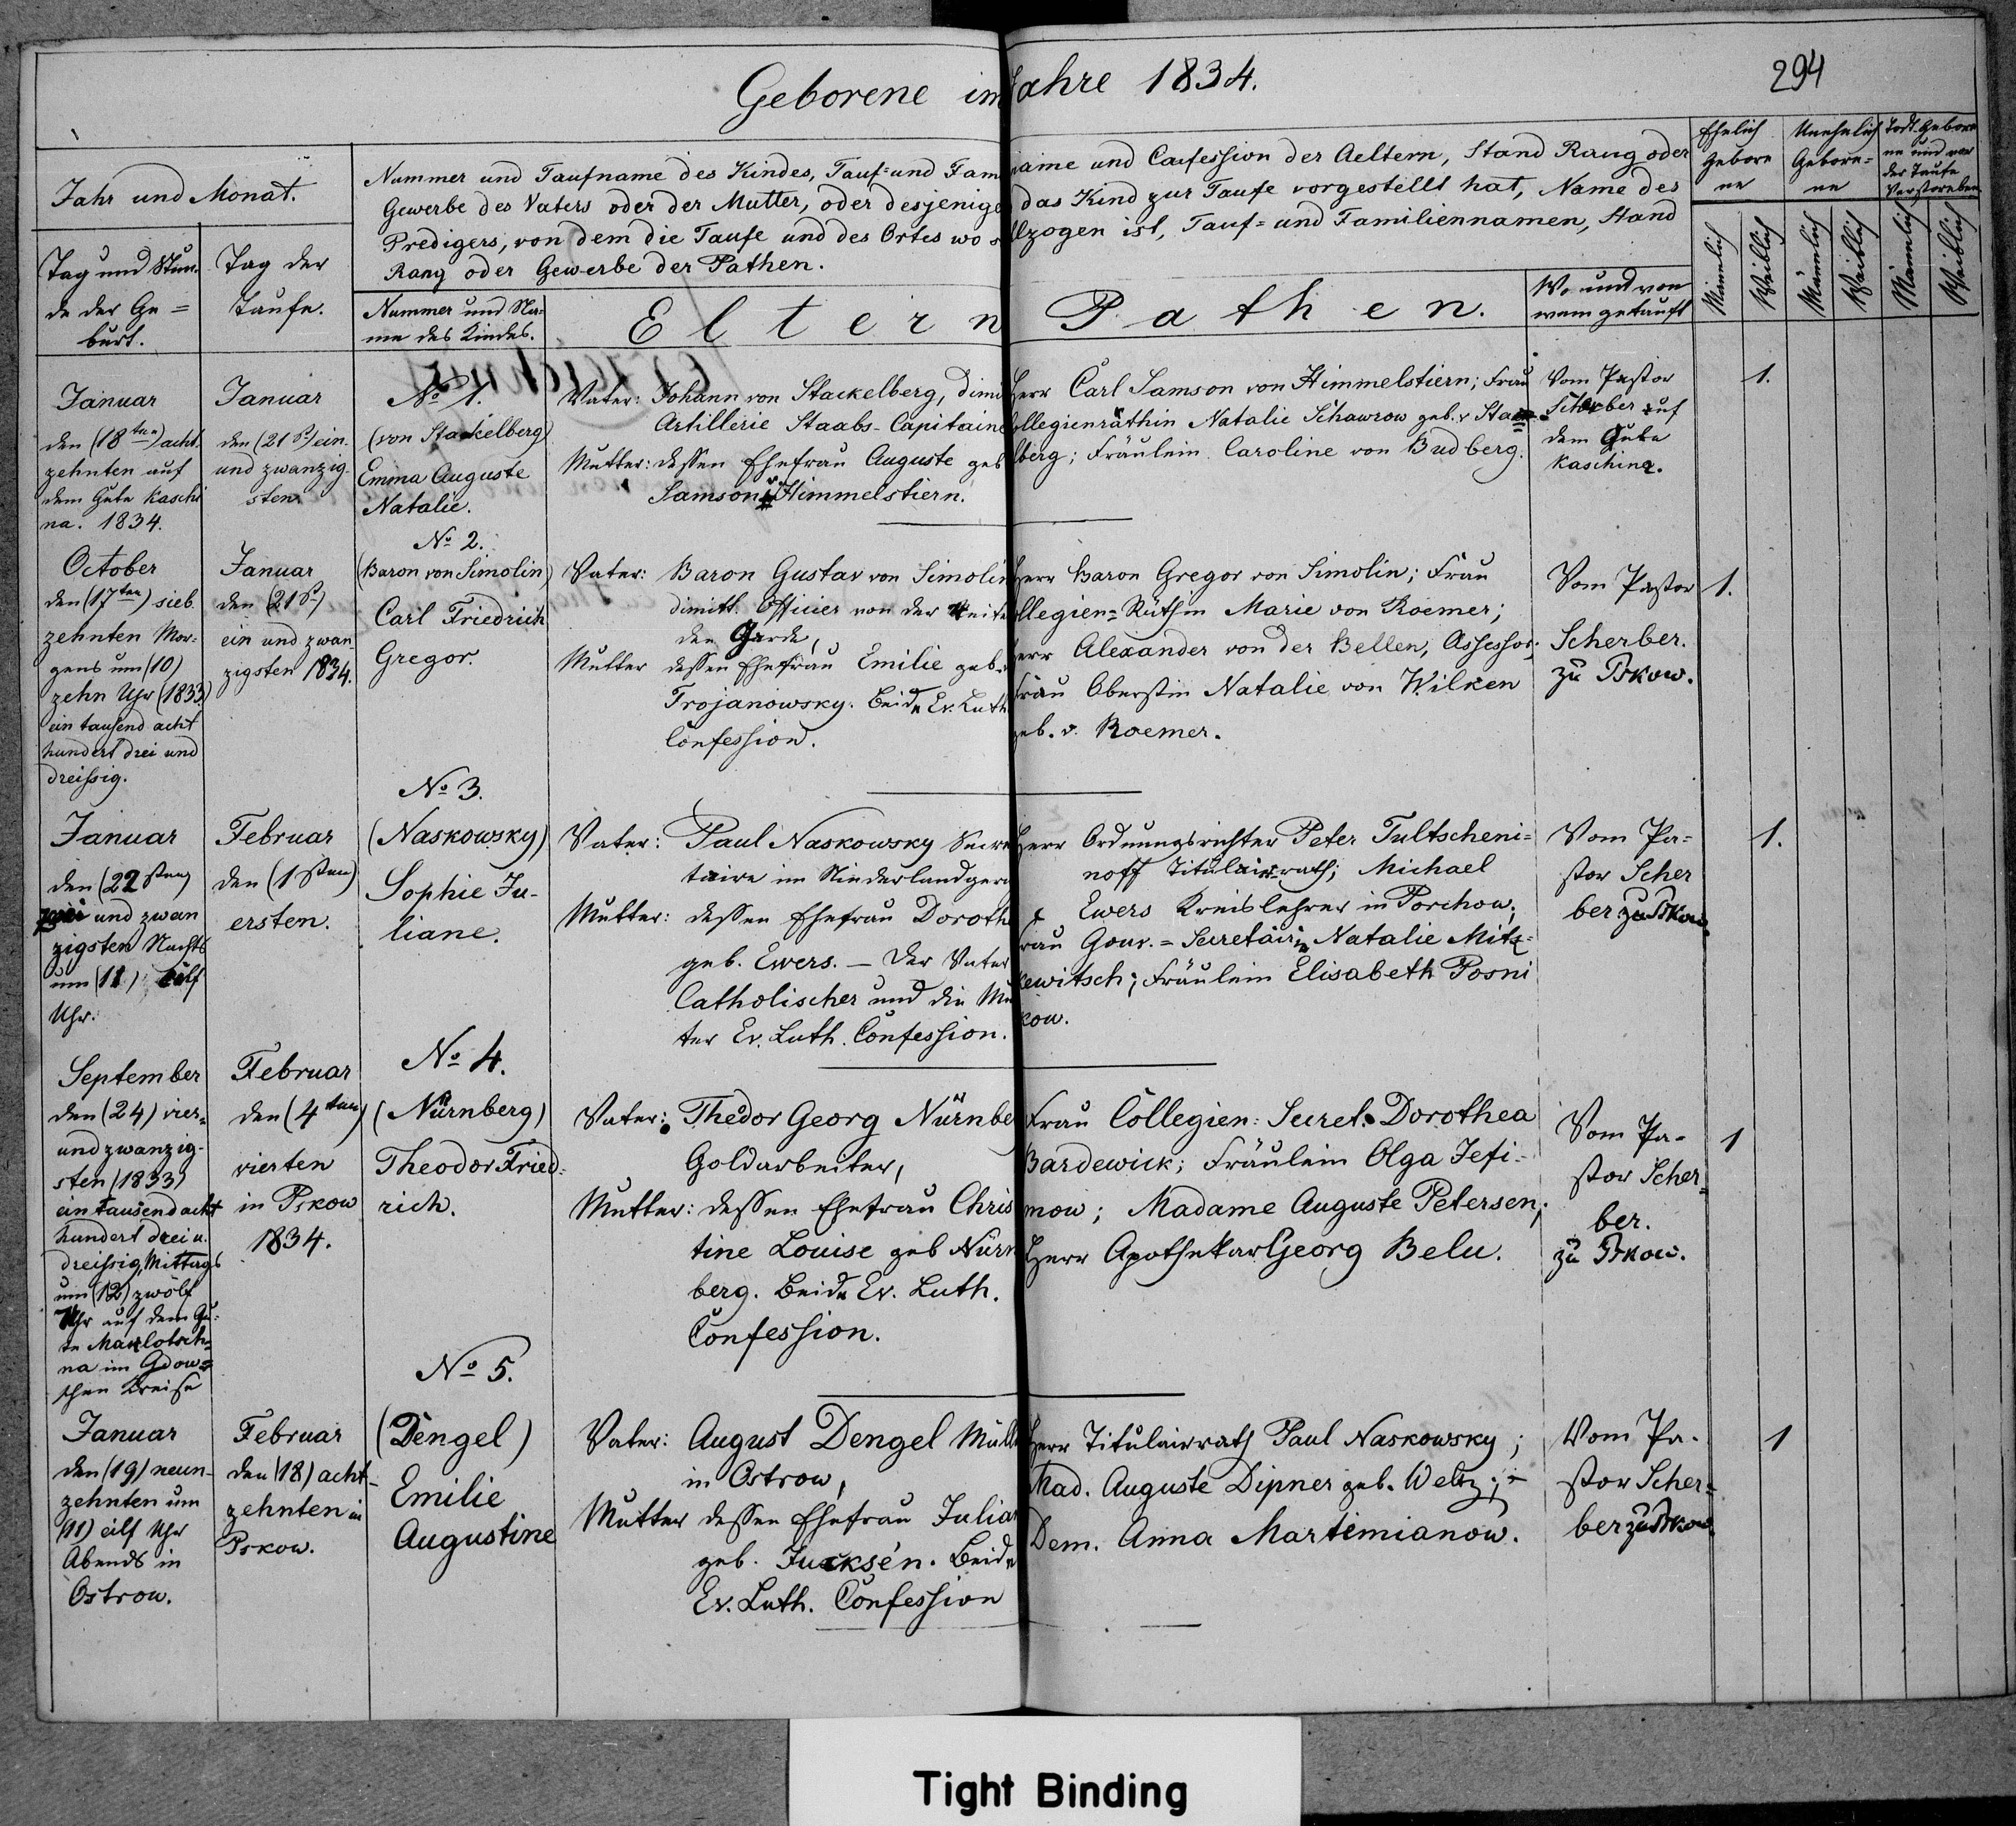 Geborene im Jahre 1834.
294
Jahr und Monat.
Tag und Stun-
de der Ge=
burt.
Tag der
Taufe.
Nummer und Taufname des Kindes, Tauf= und Fam
Gewerbe des Vaters oder der Mutter, oder desjenige
Predigers, von dem die Taufe und des Ortes wo s
Rang oder Gewerbe der Pathen.
Nummer und Na-
me des Kindes.
Eltern
name und Confession der Aeltern, Stand Rang oder
das Kind zur Taufe vorgestellt hat, Name des
llzogen ist, Tauf= und Familiennamen, Stand
Pathen.
Wo und von
wem getauft
Ehelich
Gebore
ne
Unehelich
Gebore=
ne
Todt Gebore
ne und vor
der Taufe
Verstorebene
Männlich
Weiblich
Männlich
Weiblich
Männlich
Weiblich
Januar
den (18ten) acht
zehnten auf
dem Gute Kaschi
na. 1834.
Januar
den (21st) ein
und zwanzig
sten.
No 1.
(von Stackelberg)
Emma Auguste
Natalie.
Vater: Johann von Stackelberg, dimi
Artillerie Staabs-Capitaine
Mutter: dessen Ehefrau Auguste geb
Samson v Himmelstiern.
Herr Carl Samson von Himmelstiern; Frau
ollegienräthin Natalie Schawrow geb. v
lberg; Fräulein Caroline von Budberg.
Vom Pastor
Scherber auf
dem Gute
Kaschina.
1.
October
den (17ten) sieb.
zehnten Mor-
gens um (10)
zehn Uhr (1833)
ein tausend acht
hundert drei und
dreissig.
Januar
den (21st)
ein und zwan
zigsten 1834.
No 2.
(Baron von Simolin)
Carl Friedrich
Gregor.
Vater: Baron Gustav von Simolin
dimitt. Officier von der Reite
den Garde,
Mutter dessen Ehefrau Emilie geb.
Trojanowsky. Beide Ev. Luth
Confession.
Herr Baron Gregor von Simolin; Frau
ollegien=Räthin Marie von Roemer;
Herr Alexander von der Bellen, Assessor;
Frau Oberstin Natalie von Wilken
geb. v. Roemer.
Vom Pastor
Scherber.
zu Pskow.
1.
Januar
den (22sten)
zwei und zwan
zigsten Nachts
um (11) eilf
Uhr.
Februar
den (1sten)
ersten.
No 3.
(Naskowsky)
Sophie Ju-
liane.
Vater: Paul Naskowsky Secre
taire im Niederlandger
Mutter: dessen Ehefrau Doroth
geb. Ewers. — Der Vater
Catholischer und die Mu
ter Ev. Luth. Confession.
Herr Ordnungsrichter Peter Tultscheni=
noff Titulairrath; Michael
Ewers Kreislehrer in Porchow;
Frau Gouv.=Secretairin Natalie Mitz=
kewitsch; Fräulein Elisabeth Posni
kow.
Vom Pa-
stor Scher
ber zu Pskow
1.
September
den (24) vier-
und zwanzig-
sten (1833)
ein tausend acht
hundert drei u.
dreissig, Mittags
um (12) zwölf
Uhr auf dem Gu-
te
na im Gdow=
schen Kreise
Februar
den (4ten)
vierten
in Pskow
1834.
No 4.
(Nürnberg)
Theodor Fried=
rich.
Vater: Theodor Georg Nürnbe
Goldarbeiter,
Mutter: dessen Ehefrau Chris
tine Louise geb Nürn
berg. Beide Ev. Luth.
Confession.
Frau Collegien: Secret. Dorothea
Bardewick; Fräulein Olga Jefi=
mow; Madame Auguste Petersen;
Herr Apotheker Georg Belu.
Vom Pa-
stor Scher=
ber.
zu Pskow.
1
Januar
den (19) neun-
zehnten um
(11) eilf Uhr
Abends in
Ostrow.
Februar
den (18) acht-
zehnten in
Pskow.
No 5.
(Dengel)
Emilie
Augustine
Vater: August Dengel Müll
in Ostrow,
Mutter dessen Ehefrau Julia
geb. Jucksén. Beide
Ev. Luth. Confession
Herr Titulairrath Paul Naskowsky;
Mad. Auguste Dipner geb. Weltz;
Dem. Anna Martimianow.
Vom Pa-
stor Scher=
ber zu Pskow.
1
Tight Binding